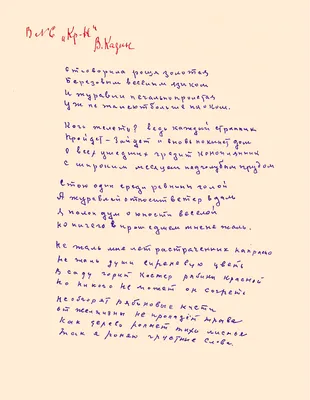 "Кр-Н"
В. Казин
Отговорила роща золотая
Березовым веселым языком
И журавли печально пролетая
Уж не жалеют больше ни о ком.
Кого жалеть? ведь каждый странник
Пройдет – Зайдет и вновь покинет дом
О всех ушедших грезит Конопляник
С широким месяцем над голубым прудом
Стою один среди равнины голой
А журавлей относит ветер вдаль
Я полон дум о юности веселой
Но ничего в прошедшем мне не жаль.
Не жаль мне лет растраченных напрасно
Не жаль души сиреневую цветь
В саду горит костер рябины красной
Но никого не может он согреть
Не обгорят рябиновые кисти
От желтизны не пропадёт трава
Как дерево роняет тихо листья
Так я роняю грустные слова.